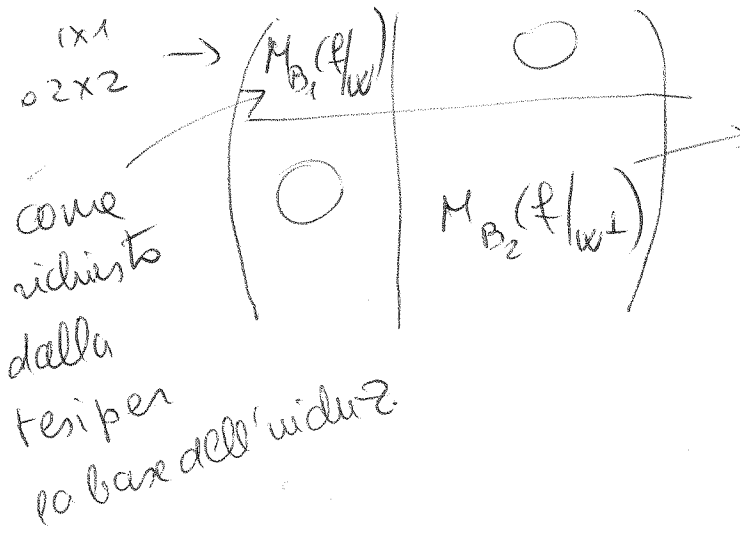 1x1
o 2x2 →
M_{B_1}(f|_W) O
O M_{B_2}(f|_{W^⊥})
come
richiesto
dalla
tesi per
la base dell'induz.